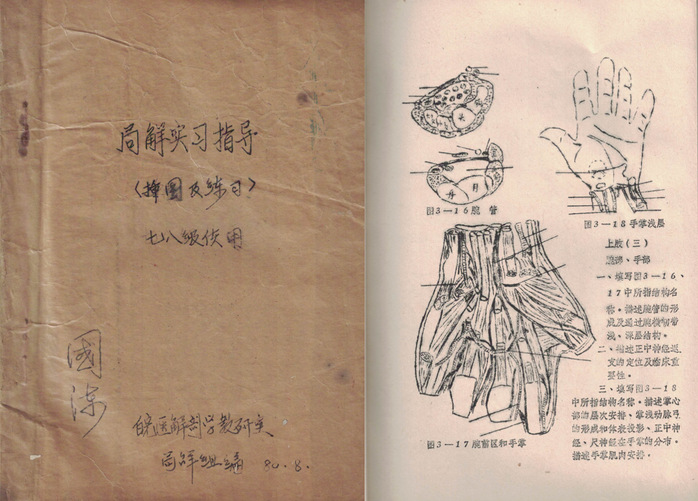 局解实习指导
（插图及练习）
七八级使用
國
皖医解剖学教研室
局解组编 80.8.
图3—16腕管
图3—18手掌浅层
上肢（三）
腕部、手部
一、填写图3—16、
17中所指结构名
称，描述腕管的形
成及通过腕横韧带
浅、深层结构。
二、描述正中神经返
支的定位及临床重
要性。
三、填写图3—18
中所指结构名称，描述掌心
部的层次安排、掌浅动脉弓
的形成和体表投影、正中神
经、尺神经在手掌的分布，
描述手掌肌肉安排。
图3—17腕前区和手掌